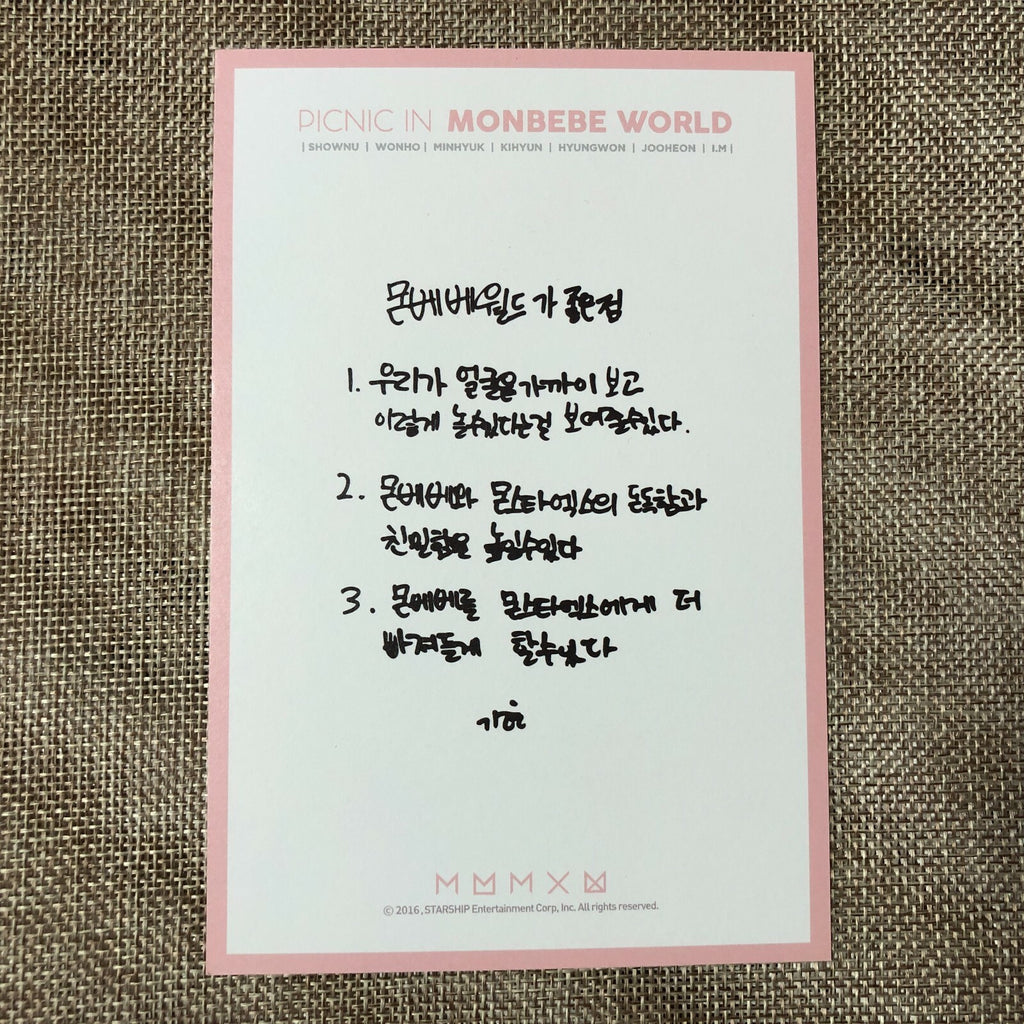 PICNIC IN MONBEBE WORLD
| SHOWNU | WONHO | MINHYUK | KIHYUN | HYUNGWON | JOOHEON | I.M |
몬베베월드가 좋은점
1. 우리가 얼굴은 가까이 보고
이렇게 놀수있다는걸 보여줄수있다.
2. 몬베베와 몬스타엑스의 돈독함과
친밀함을 높일수있다
3. 몬베베를 몬스타엑스에게 더
빠져들게 할수있다
© 2016, STARSHIP Entertainment Corp, Inc. All rights reserved.